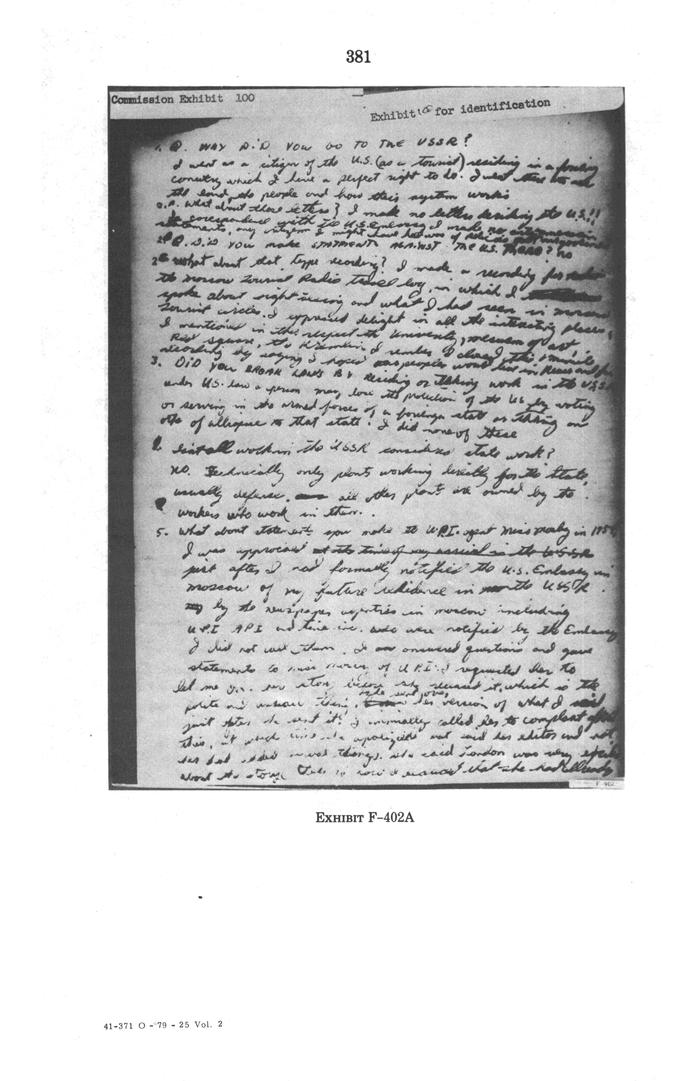 381
Commission Exhibit 100
Exhibit 100 for identification
1. Q. WHY DID YOU GO TO THE USSR?
I went as a citizen of the U.S. (as a tourist) residing in a
country which I have a perfect right to do. I went there to see
the land, the people and how their system works
Q. What about those letters? I made no letters deriding the U.S.!!
In correspondence with the U.S. Embassy I made no
statements, any
Q. DID YOU MAKE STATEMENTS AGAINST THE U.S. THERE? no
2. What about that type recording? I made a recording for
the moscow Tourist Radio travel log, in which I
spoke about sight-seeing and what I had seen in moscow
tourist circles. I expressed delight in all the interesting places,
I mentioned in this respect the University, museum of art
Red Square, the Kremlin, I remember I closed this
recording by saying I hoped peoples would live in peace and
3. DID YOU BREAK LAWS BY residing or taking work in the USSR
under U.S. law a person may lose the protection of the U.S. by voting
or serving in the armed forces of a state or taking an
of that state. I did none of these
Isnt all work in the USSR considered state work?
no. Technically only plants working directly for the State,
usually defense. all other plants are owned by the
workers who work in them.
5. What about statements you made to U.P.I. agent Miss in
I was at the time of my arrival in the USSR
just after I had formally notified the U.S. Embassy in
moscow of my future in the USSR.
by the newspaper in moscow including
U.P.I. A.P.I. and time inc. who were notified by the Embassy
I did not call them. I answered questions and gave
statements to miss of U.P.I. I requested her to
let me her story before she released it, which is the
polite and usual thing. her version of what I said
just she sent it. I called her to about
this, at which time she and said her editor and not
her had added things. she said London was very
about the story that she had already
F-402
EXHIBIT F-402A
41-371 O - '79 - 25 Vol. 2